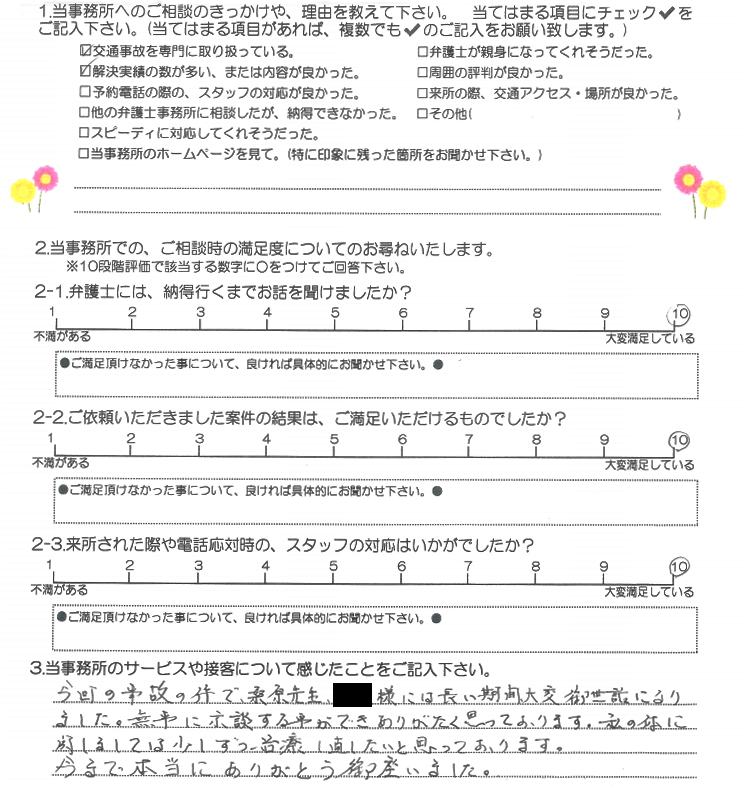 1.当事務所へのご相談のきっかけや、理由を教えて下さい。 当てはまる項目にチェック✔を
ご記入下さい。(当てはまる項目があれば、複数でも✔のご記入をお願い致します。)
☑交通事故を専門に取り扱っている。 □弁護士が親身になってくれそうだった。
☑解決実績の数が多い、または内容が良かった。 □周囲の評判が良かった。
□予約電話の際の、スタッフの対応が良かった。 □来所の際、交通アクセス・場所が良かった。
□他の弁護士事務所に相談したが、納得できなかった。 □その他( )
□スピーディに対応してくれそうだった。
□当事務所のホームページを見て。(特に印象に残った箇所をお聞かせ下さい。)
2.当事務所での、ご相談時の満足度についてのお尋ねいたします。
※10段階評価で該当する数字に〇をつけてご回答下さい。
2-1.弁護士には、納得行くまでお話を聞けましたか?
1 2 3 4 5 6 7 8 9 10
不満がある 大変満足している
●ご満足頂けなかった事について、良ければ具体的にお聞かせ下さい。●
2-2.ご依頼いただきました案件の結果は、ご満足いただけるものでしたか?
1 2 3 4 5 6 7 8 9 10
不満がある 大変満足している
●ご満足頂けなかった事について、良ければ具体的にお聞かせ下さい。●
2-3.来所された際や電話応対時の、スタッフの対応はいかがでしたか?
1 2 3 4 5 6 7 8 9 10
不満がある 大変満足している
●ご満足頂けなかった事について、良ければ具体的にお聞かせ下さい。●
3.当事務所のサービスや接客について感じたことをご記入下さい。
今回の事故の件で桑原先生、様には長い期間大変御世話になり
ました。無事に示談する事ができありがたく思っております。私の体に
関しましては少しずつ治療し直したいと思っております。
今まで本当にありがとう御座いました。